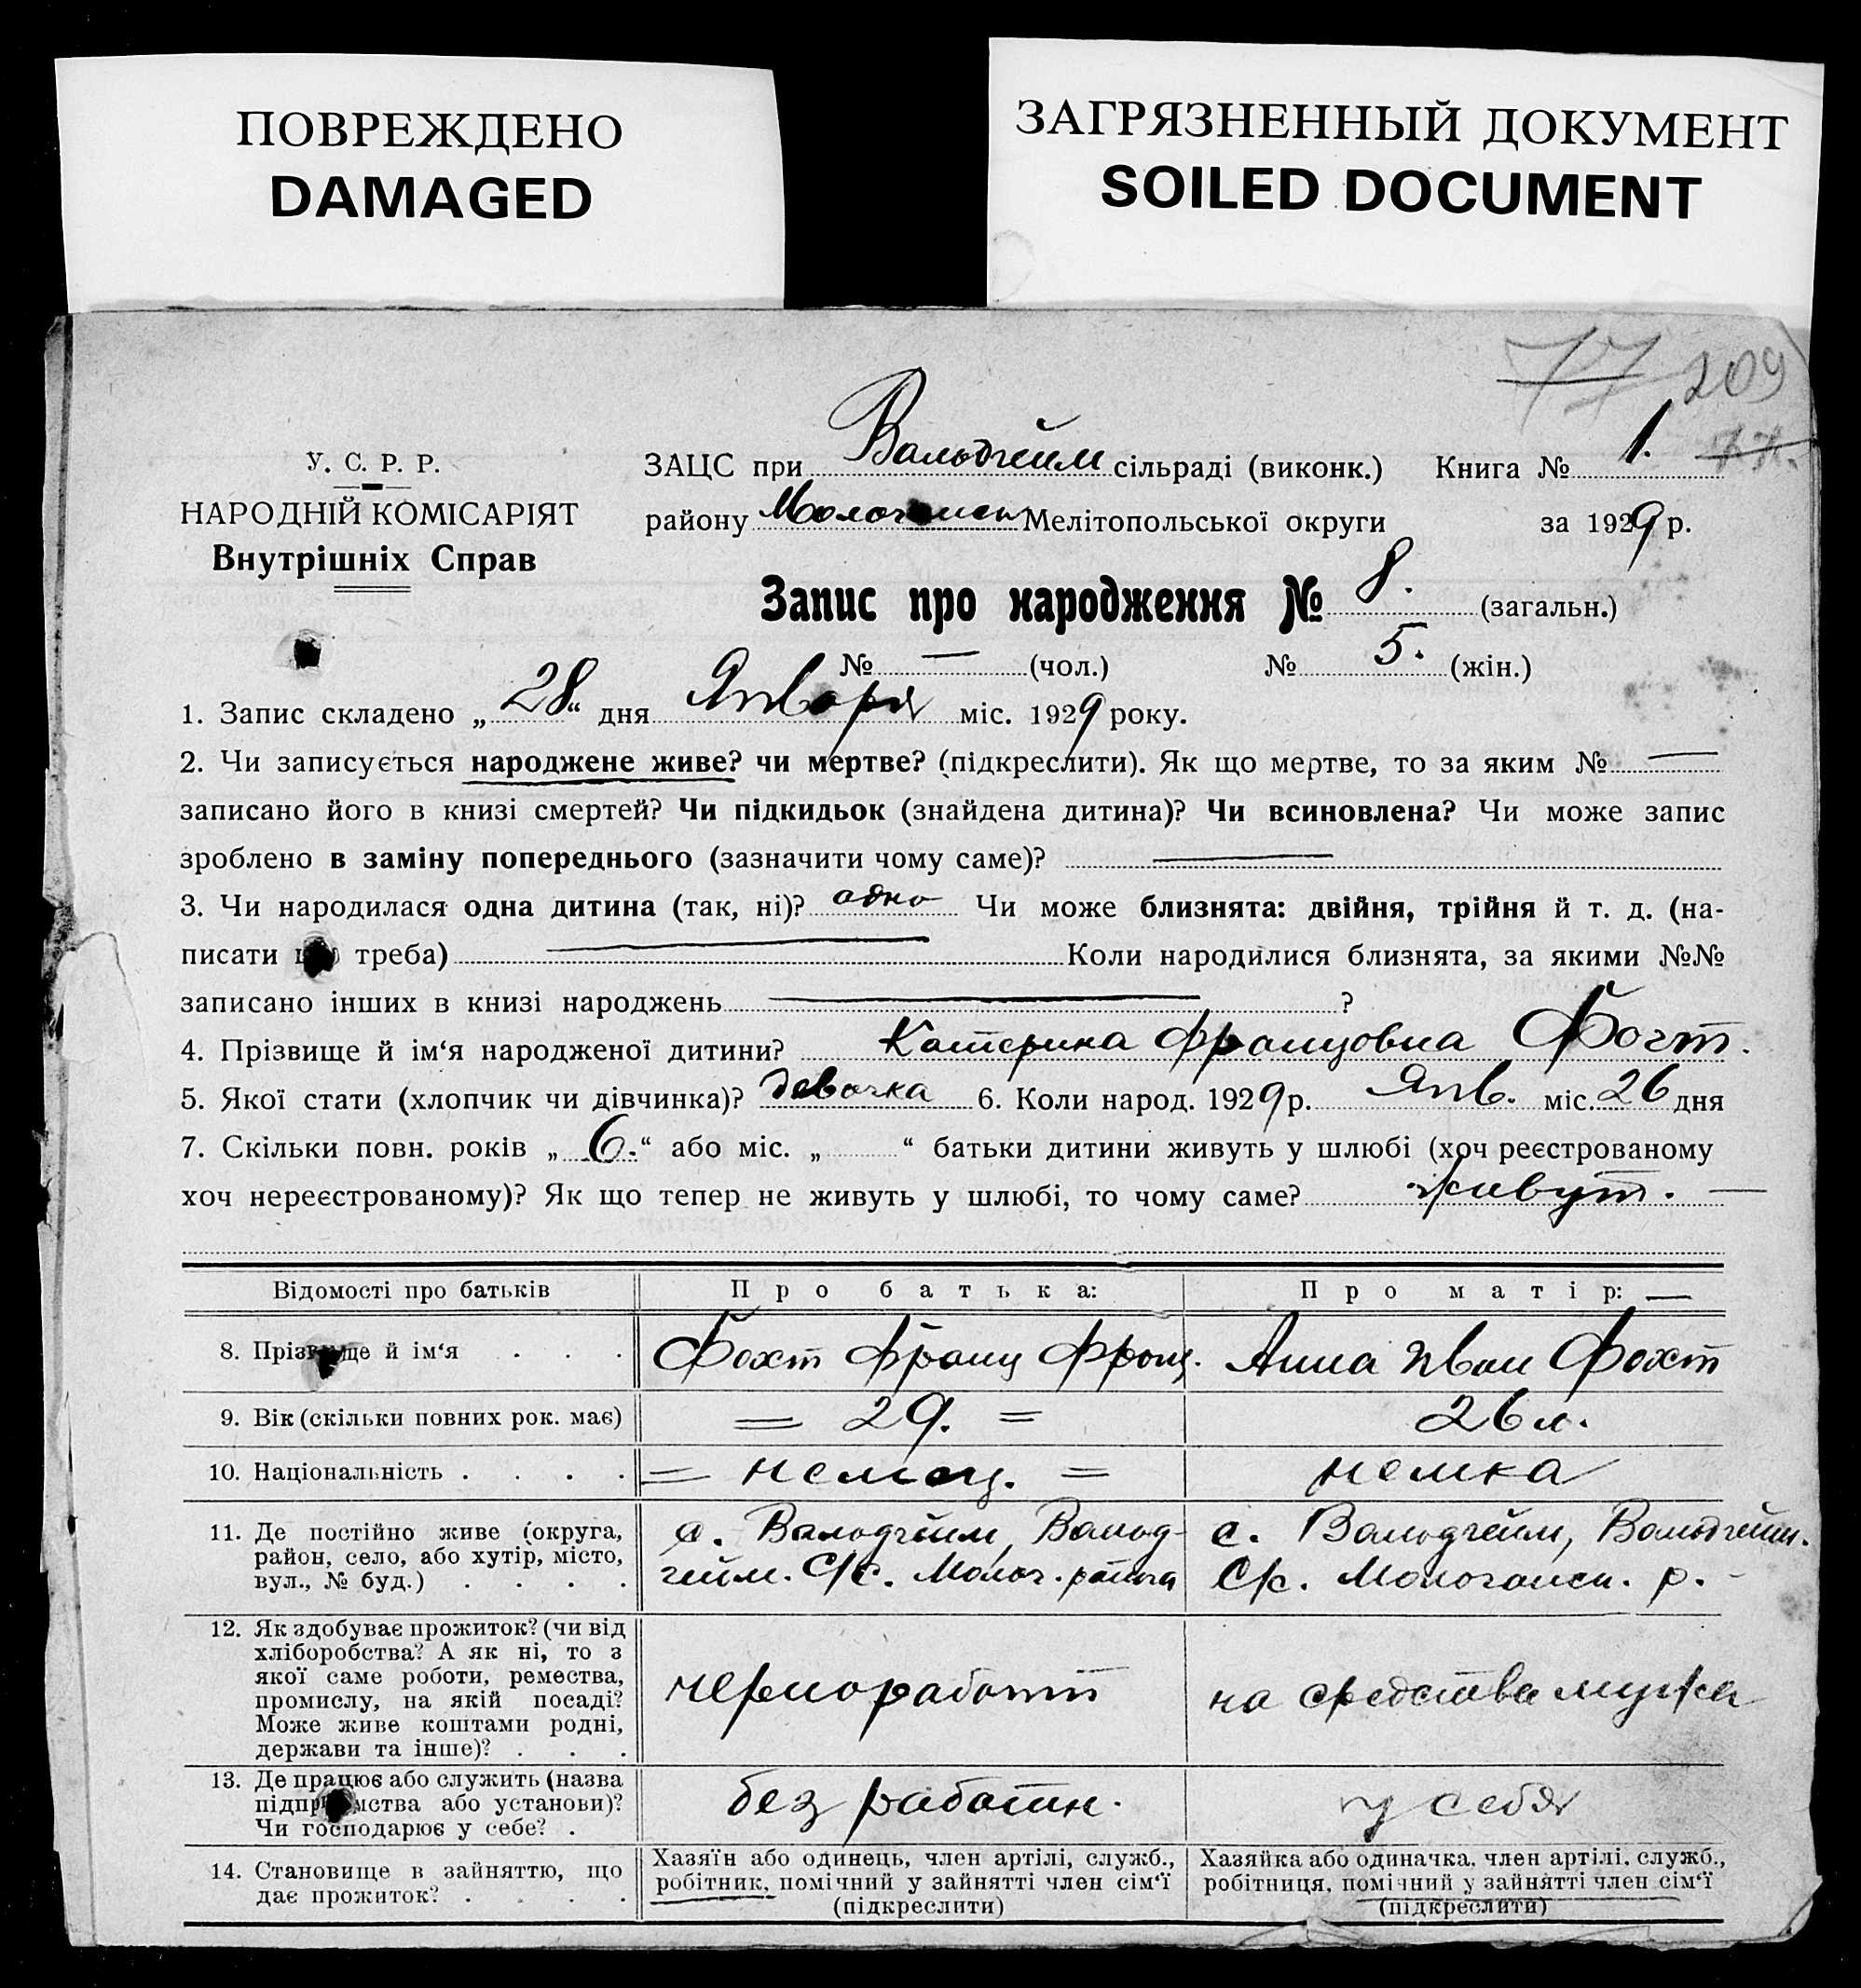 ПОВРЕЖДЕНО
DAMAGED
ЗАГРЯЗНЕННЫЙ ДОКУМЕНТ
SOILED DOCUMENT
77 209
У. С. Р. Р.
НАРОДНІЙ КОМІСАРІЯТ
Внутрішніх Справ
ЗАЦС при Вальдгейм сільраді (виконк.) Книга № 1.
району Мелітопольської округи за 1929 р.
Запис про народження № 8. (загальн.)
№ — (чол.) № 5. (жін.)
1. Запис складено „28“ дня Января міс. 1929 року.
2. Чи записується народжене живе? чи мертве? (підкреслити). Як що мертве, то за яким № —
записано його в книзі смертей? Чи підкидьок (знайдена дитина)? Чи всиновлена? Чи може запис
зроблено в заміну попереднього (зазначити чому саме)? —
3. Чи народилася одна дитина (так, ні)? одно Чи може близнята: двійня, трійня й т. д. (на-
писати треба) — Коли народилися близнята, за якими №№
записано інших в книзі народжень — ?
4. Прізвище й ім‘я народженої дитини? Катерина Францовна Фогт.
5. Якої стати (хлопчик чи дівчинка)? девочка 6. Коли народ. 1929 р. Янв. міс. 26 дня
7. Скільки повн. років „6.“ або міс. „ “ батьки дитини живуть у шлюбі (хоч реєстрованому
хоч нереєстрованому)? Як що тепер не живуть у шлюбі, то чому саме? живут. —
Відомості про батьків Про батька: Про матір: —
8. Прізвище й ім‘я . . . Фохт Франц Франц. Анна Иван Фохт
9. Вік (скільки повних рок. має) = 29. = 26 л.
10. Національність . . . . = немец. = немка
11. Де постійно живе (округа,
район, село, або хутір, місто,
вул., № буд.) . . . .
с. Вальдгейм, Вальд-
гейм. С/с. Молоч. района
с. Вальдгейм, Вальдгейм.
С/с. Молочанск. р. -
12. Як здобуває прожиток? (чи від
хліборобства? А як ні, то з
якої саме роботи, ремества,
промислу, на якій посаді?
Може живе коштами родні,
держави та інше)? . . .
черноработ
на средства мужа
13. Де працює або служить (назва
підприємства або установи)?
Чи господарює у себе? .
без работы.
у себя
14. Становище в зайняттю, що
дає прожиток? . . . .
Хазяїн або одинець, член артілі, служб.,
робітник, помічний у зайнятті член сім‘ї
(підкреслити)
Хазяйка або одиначка, член артілі, служб.,
робітниця, помічний у зайнятті член сім‘ї
(підкреслити)